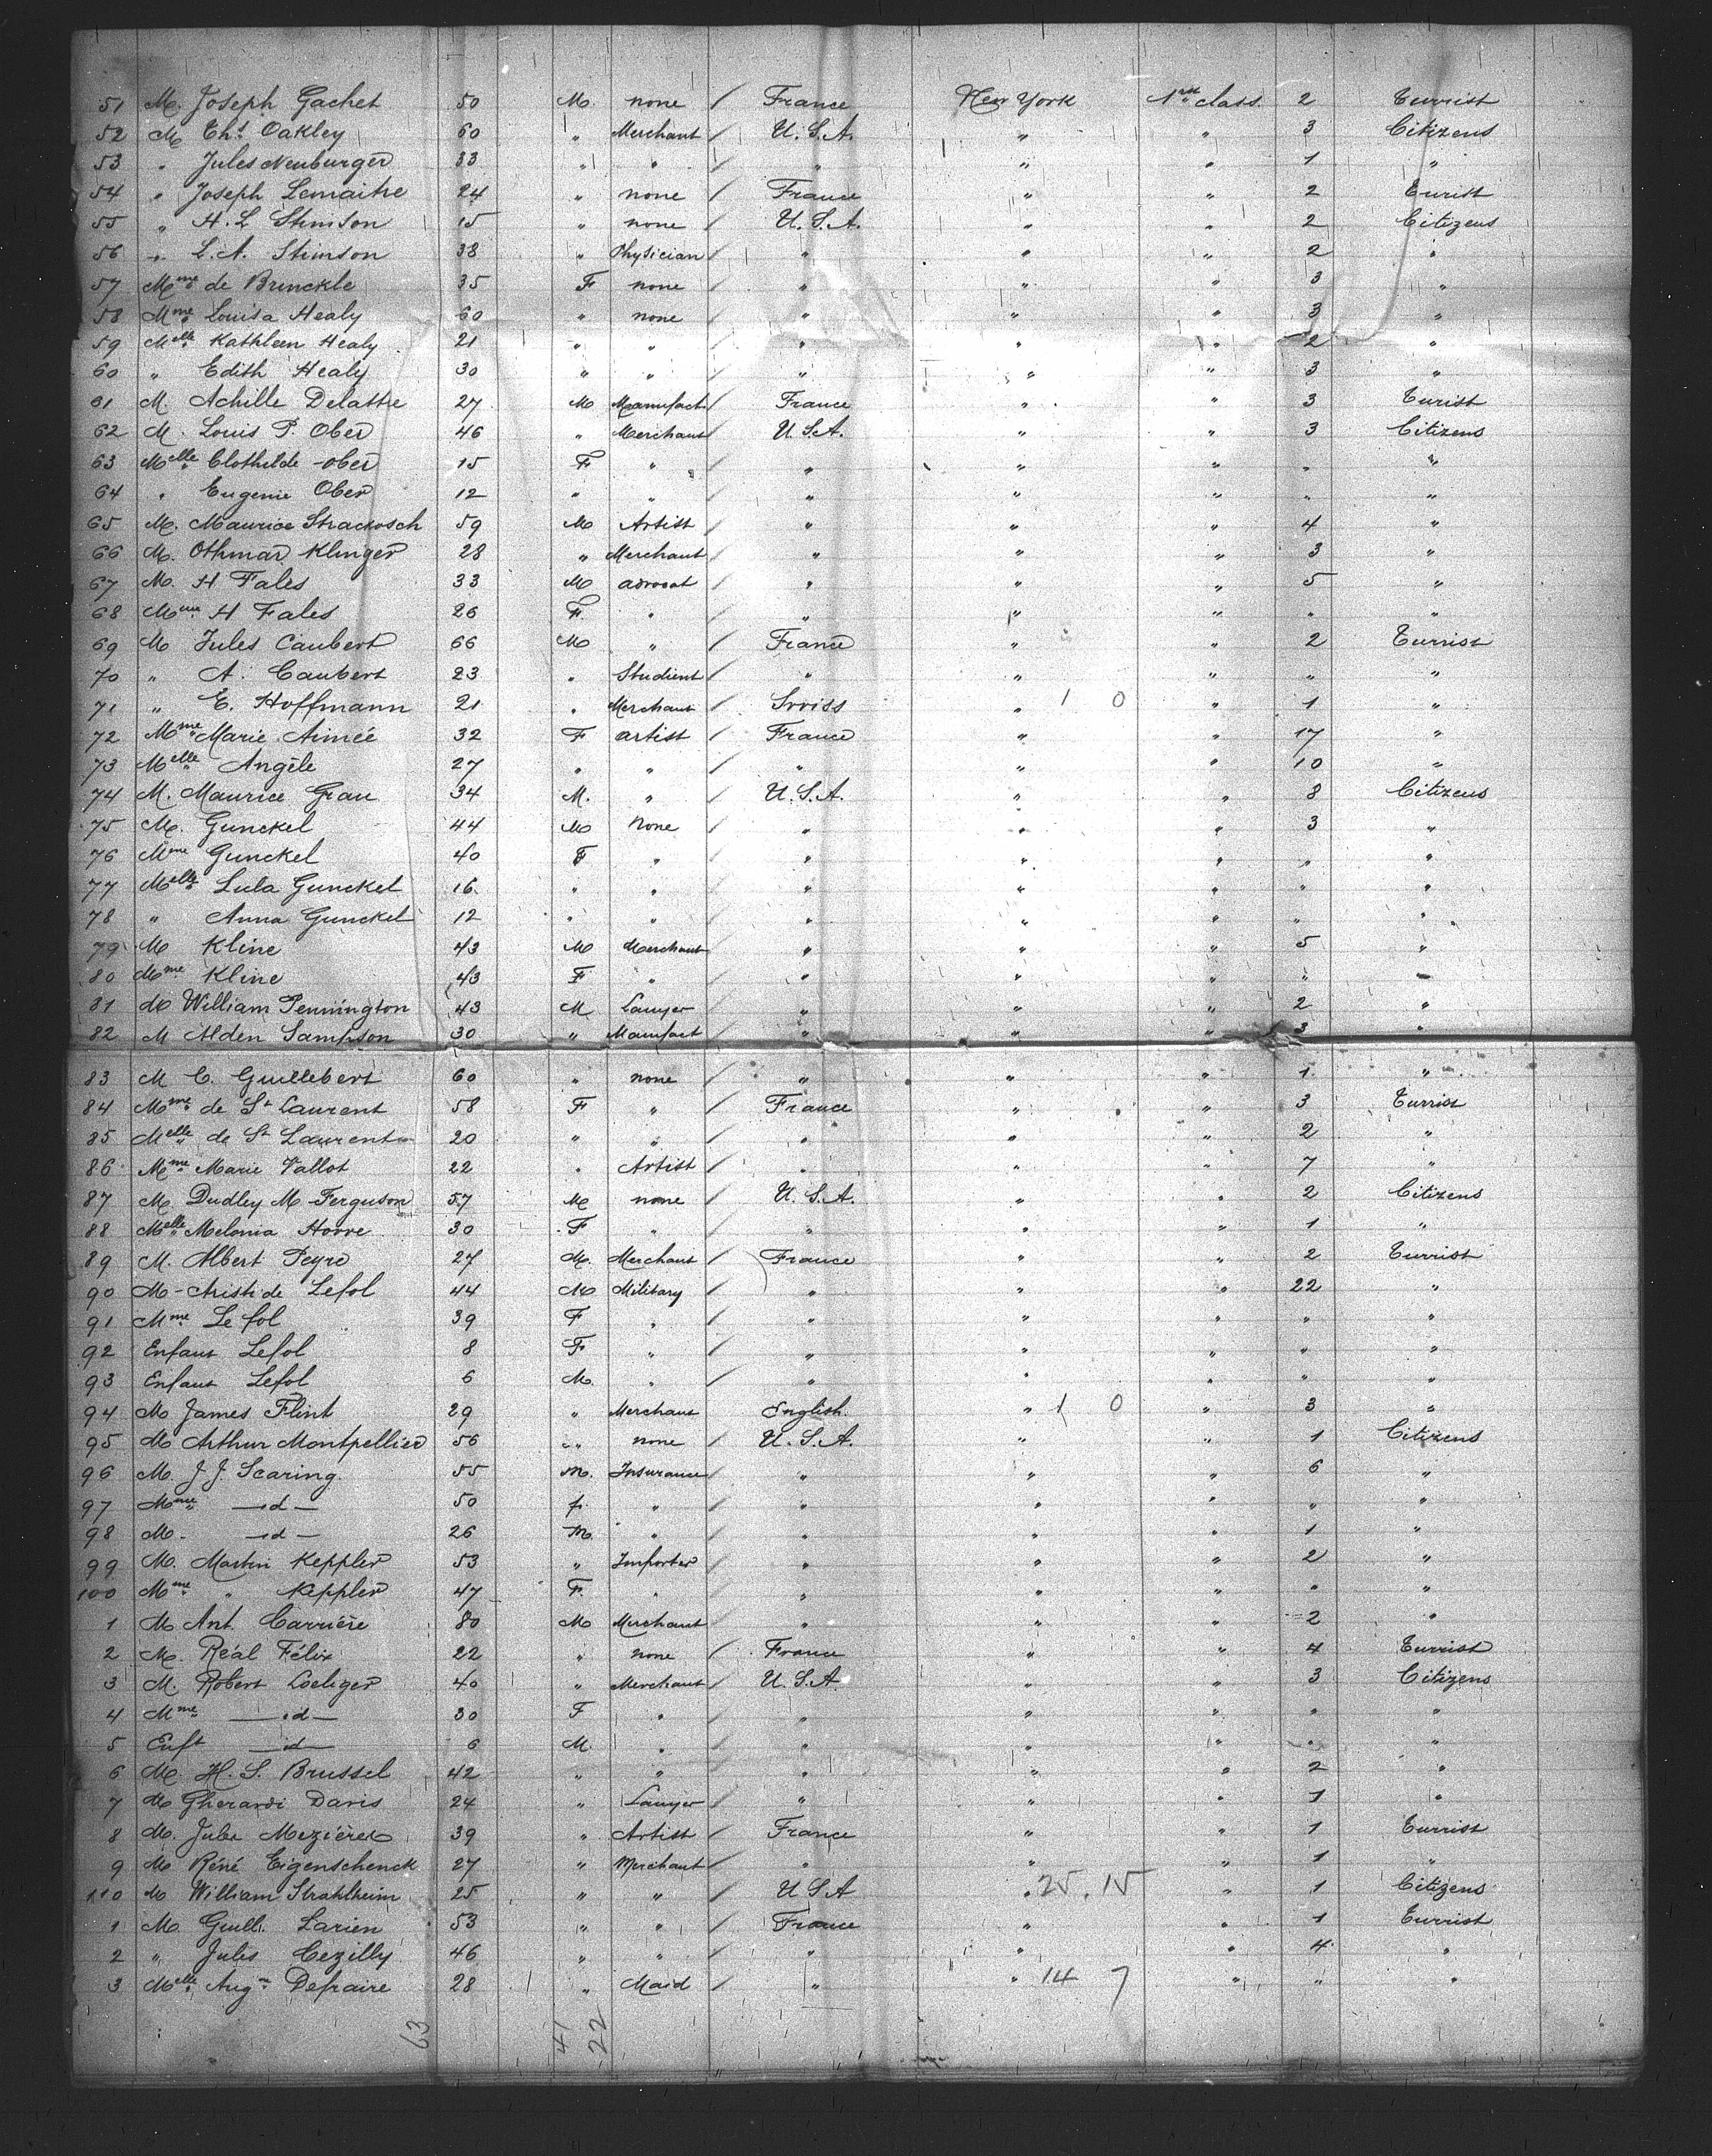 51 M. Joseph Gachet 50 M. none / France New York 1re class. 2 Turrist
52 M Chs Oakley 60 " Merchant / U.S.A. " " 3 Citizens
53 " Jules Neuburger 33 " " / " " " 1 "
54 " Joseph Lemaitre 24 " none / France " " 2 Turist
55 " H. L Stimson 15 " none / U.S.A. " " 2 Citizens
56 " L. A. Stimson 38 " Physician / " " " 2 "
57 Mme de Brinckle 35 F none / " " " 3 "
58 Mme Louisa Healy 60 " none / " " " 3 "
59 Melle Kathleen Healy 21 " " / " " " 2 "
60 " Edith Healy 30 " " / " " " 3 "
61 M. Achille Delattre 27 M Manufact / France " " 3 Turist
62 M. Louis P. Ober 46 " Merchant / U.S.A. " " 3 Citizens
63 Melle Clothilde Ober 15 F " / " " " " "
64 " Eugenie Ober 12 " " / " " " " "
65 M. Maurice Strackosch 59 M Artist / " " " 4 "
66 M. Othmar Klinger 28 " Merchant / " " " 3 "
67 M. H Fales 33 M advocat / " " " 5 "
68 Mme H Fales 26 F. " / " " " " "
69 M Jules Caubert 66 M " / France " " 2 Turrist
70 " A. Caubert 23 " Studient / " " " " "
71 " E. Hoffmann 21 " Merchant / Swiss " 1 0 " 1 "
72 Mme Marie Aimée 32 F artist / France " " 17 "
73 Melle Angèle 27 " " / " " " 10 "
74 M. Maurice Grau 34 M. " / U.S.A. " " 8 Citizens
75 M. Gunckel 44 M None / " " " 3 "
76 Mme Gunckel 40 F " / " " " " "
77 Melle Lula Gunckel 16 " " / " " " " "
78 " Anna Gunckel 12 " " / " " " " "
79 M Kline 43 M Merchant / " " " 5 "
80 Mme Kline 43 F " / " " " " "
81 M William Pennington 43 M Lawyer / " " " 2 "
82 M Alden Sampson 30 " Manufact / " " " 3 "
83 M C. Guillebert 60 " none / " " " 1 "
84 Mme de St Laurent 58 F " / France " " 3 Turrist
85 Melle de St Laurent 20 " " / " " " 2 "
86 Mme Marie Vallot 22 " Artist / " " " 7 "
87 M Dudley M Ferguson 57 M none / U.S.A. " " 2 Citizens
88 Melle Melonia Horre 30 F " / " " " 1 "
89 M. Albert Peyre 27 M. Merchant / France " " 2 Turrist
90 M Aristide Lefol 44 M Military / " " " 22 "
91 Mme Lefol 39 F " / " " " " "
92 Enfant Lefol 8 F " / " " " " "
93 Enfant Lefol 6 M. " / " " " " "
94 M James Flint 29 " Merchant English. " 1 0 " 3 "
95 M Arthur Montpellier 56 " none / U.S.A. " " 1 Citizens
96 M. J J Searing. 55 M. Insurance / " " " 6 "
97 Mme —id— 50 f. " / " " " " "
98 M. —id— 26 M. " / " " " 1 "
99 M. Martin Keppler 53 " Importer / " " " 2 "
100 Mme " Keppler 47 F. " / " " " " "
1 M Ant. Carrière 80 M Merchant / " " " 2 "
2 M. Réal Félix 22 " none / France " " 4 Turrist
3 M. Robert Loeliger 40 " Merchant / U.S.A. " " 3 Citizens
4 Mme —id— 30 F " / " " " " "
5 Enft —id— 6 M. " / " " " " "
6 M. H. S. Brussel 42 " " / " " " 2 "
7 M Gherardi Davis 24 " Lawyer / " " " 1 "
8 M. Jules 39 " Artist / France " " 1 Turrist
9 M Réné Eigenschenck 27 " Merchant / " " " 1 "
110 M William Strahlheim 25 " " / U S A " 25. 15 " 1 Citizens
1 M Guill. Larien 53 " " / France " " 1 Turrist
2 " Jules Cezilly 46 " " / " " " 4 "
3 Melle Augne Defraire 28 " Maid / " " 14 7 " " "
63 41 22